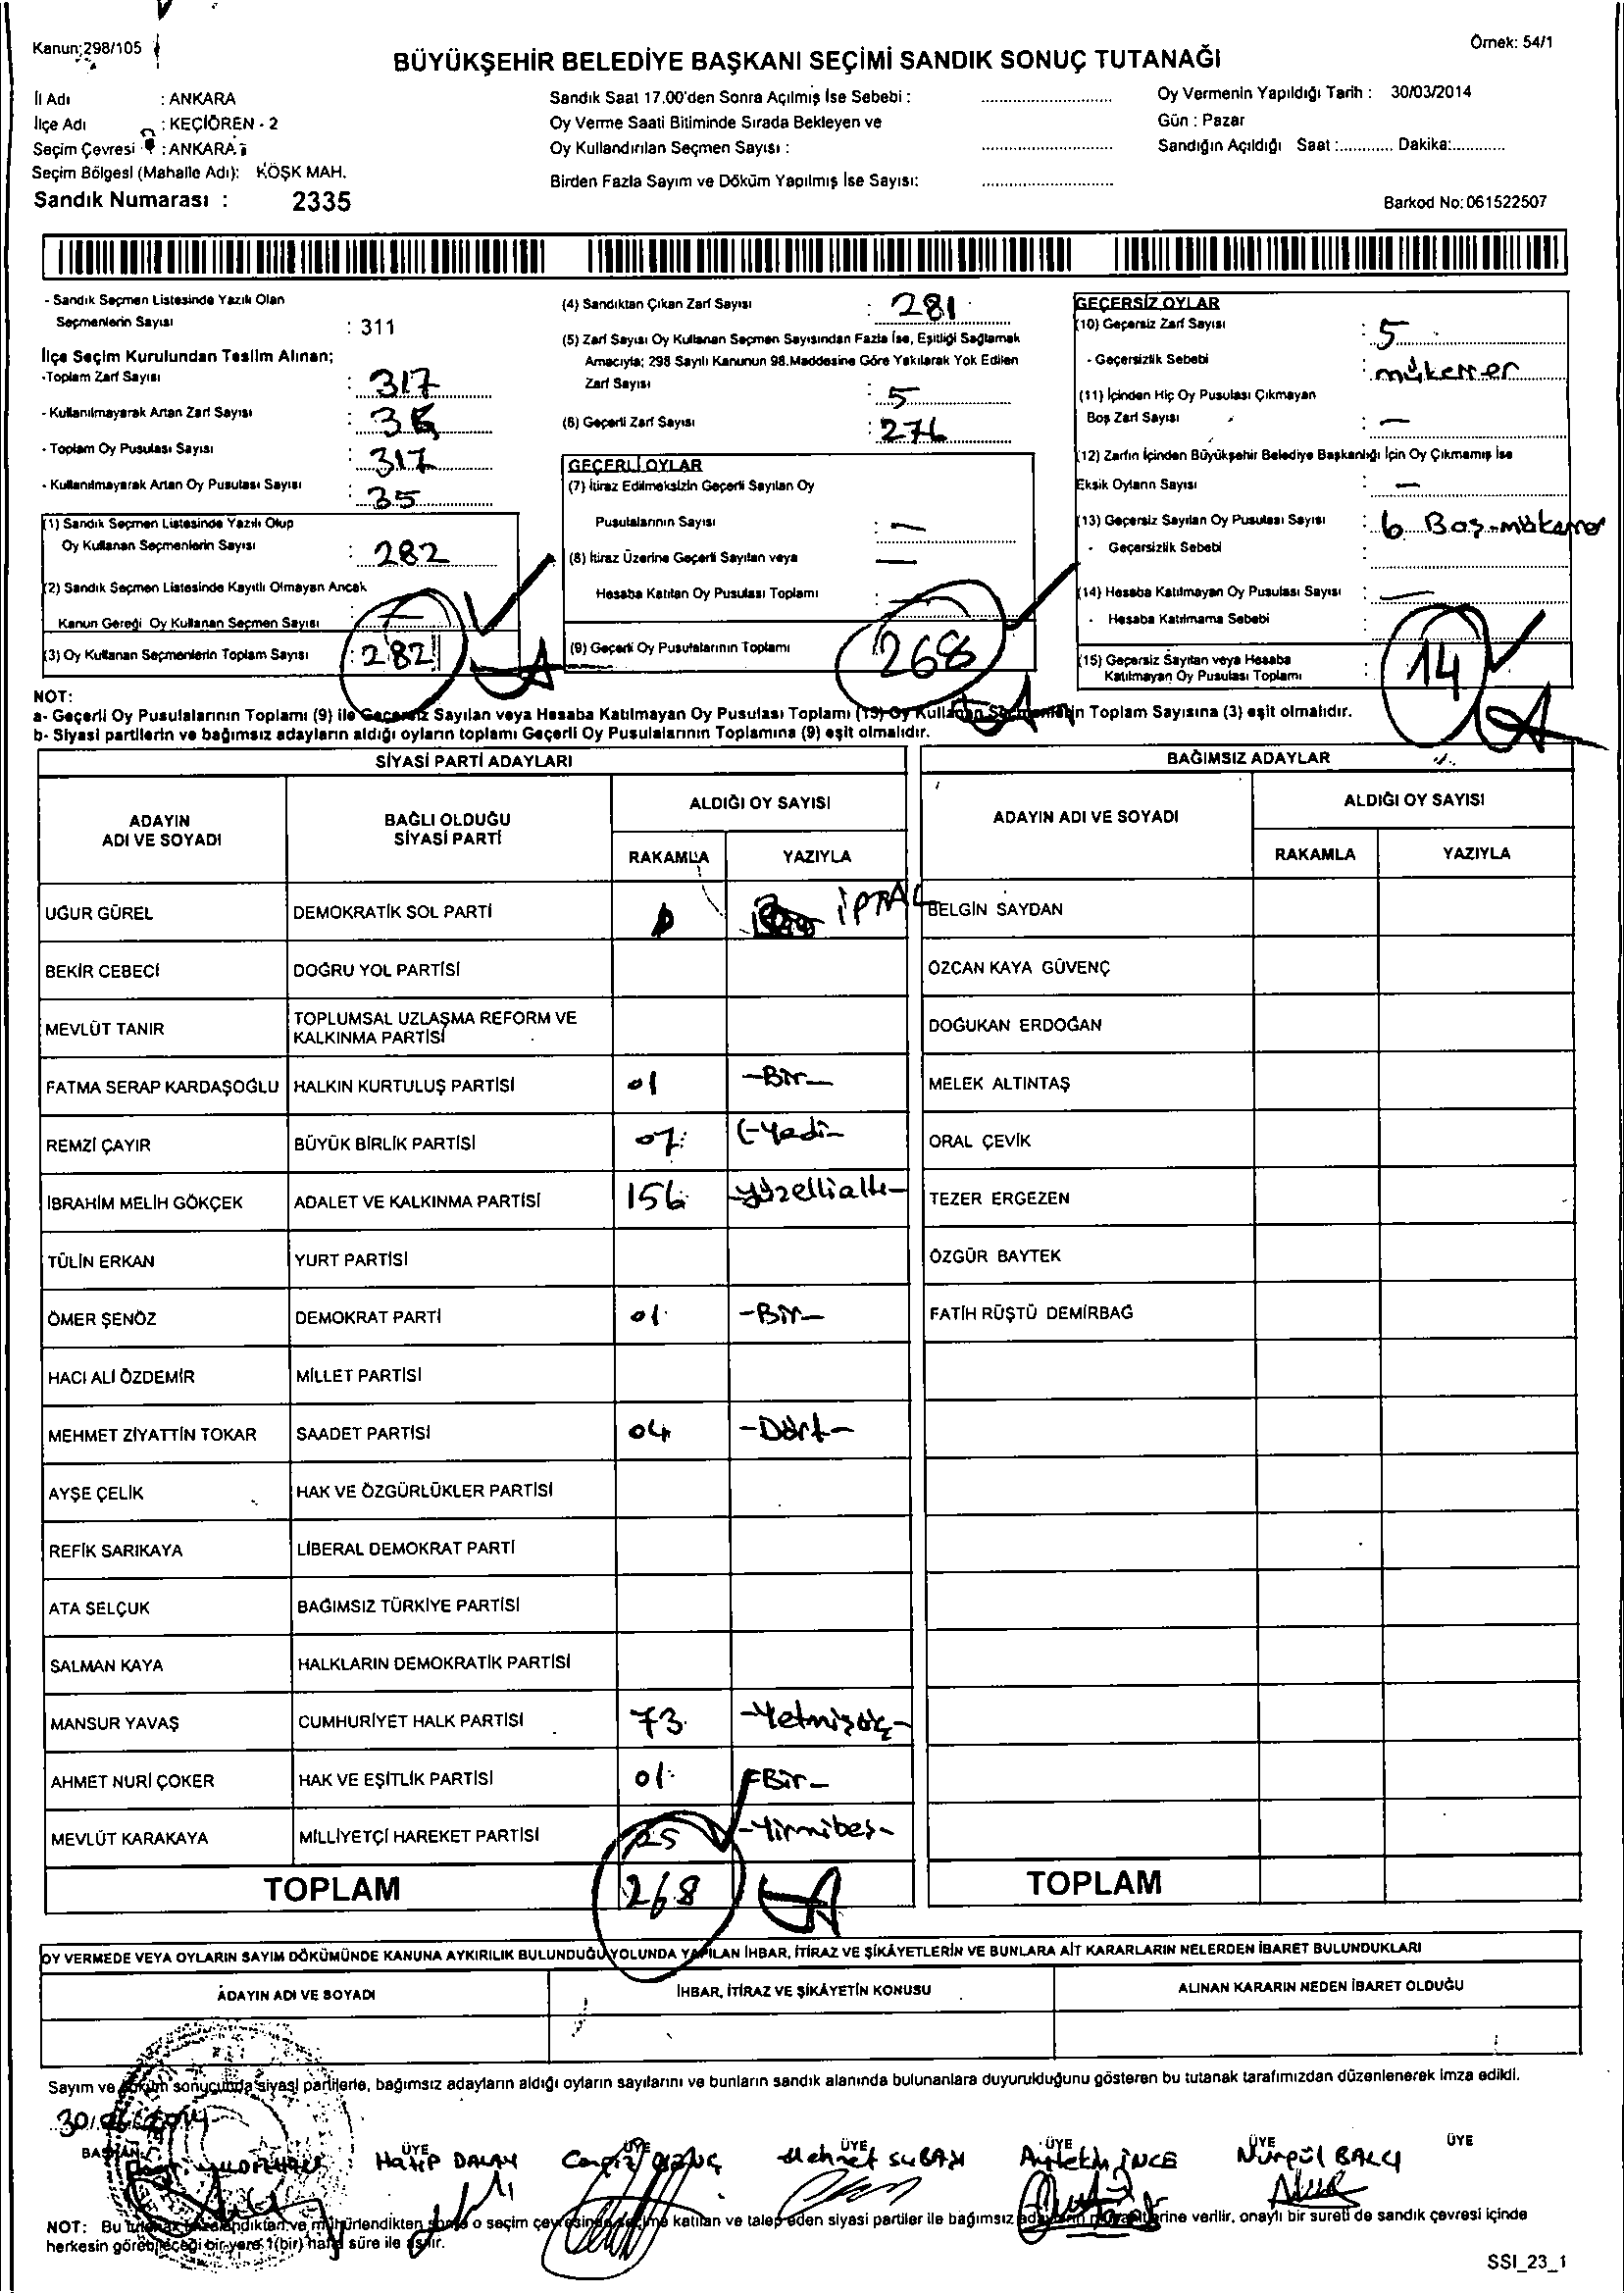 Kanun:298/105
Örnek: 54/1
BÜYÜKŞEHİR BELEDİYE BAŞKANI SEÇİMİ SANDIK SONUÇ TUTANAĞI
İl Adı : ANKARA
İlçe Adı : KEÇİÖREN - 2
Seçim Çevresi : ANKARA
Seçim Bölgesi (Mahalle Adı): KÖŞK MAH.
Sandık Numarası : 2335
Sandık Saat 17.00'den Sonra Açılmış İse Sebebi :
Oy Verme Saati Bitiminde Sırada Bekleyen ve
Oy Kullandırılan Seçmen Sayısı :
Birden Fazla Sayım ve Döküm Yapılmış İse Sayısı:
Oy Vermenin Yapıldığı Tarih : 30/03/2014
Gün : Pazar
Sandığın Açıldığı Saat :............ Dakika:............
Barkod No: 061522507
- Sandık Seçmen Listesinde Yazılı Olan
Seçmenlerin Sayısı : 311
İlçe Seçim Kurulundan Teslim Alınan;
-Toplam Zarf Sayısı : 317
- Kullanılmayarak Artan Zarf Sayısı
- Toplam Oy Pusulası Sayısı : 317
- Kullanılmayarak Artan Oy Pusulası Sayısı : 35
(1) Sandık Seçmen Listesinde Yazılı Olup
Oy Kullanan Seçmenlerin Sayısı : 282
(2) Sandık Seçmen Listesinde Kayıtlı Olmayan Ancak
Kanun Gereği Oy Kullanan Seçmen Sayısı : —
(3) Oy Kullanan Seçmenlerin Toplam Sayısı : 282
(4) Sandıktan Çıkan Zarf Sayısı : 281
(5) Zarf Sayısı Oy Kullanan Seçmen Sayısından Fazla İse, Eşitliği Sağlamak
Amacıyla; 298 Sayılı Kanunun 98.Maddesine Göre Yakılarak Yok Edilen
Zarf Sayısı : 5
(6) Geçerli Zarf Sayısı : 276
GEÇERLİ OYLAR
(7) İtiraz Edilmeksizin Geçerli Sayılan Oy
Pusulalarının Sayısı : —
(8) İtiraz Üzerine Geçerli Sayılan veya —
Hesaba Katılan Oy Pusulası Toplamı : —
(9) Geçerli Oy Pusulalarının Toplamı 268
GEÇERSİZ OYLAR
(10) Geçersiz Zarf Sayısı : 5
- Geçersizlik Sebebi : mükerrer
(11) İçinden Hiç Oy Pusulası Çıkmayan
Boş Zarf Sayısı : —
(12) Zarfın İçinden Büyükşehir Belediye Başkanlığı İçin Oy Çıkmamış İse
Eksik Oyların Sayısı : —
(13) Geçersiz Sayılan Oy Pusulası Sayısı : 6 Boş-mükerrer
- Geçersizlik Sebebi :
(14) Hesaba Katılmayan Oy Pusulası Sayısı : —
- Hesaba Katılmama Sebebi :
(15) Geçersiz Sayılan veya Hesaba
Katılmayan Oy Pusulası Toplamı : 14
NOT:
a- Geçerli Oy Pusulalarının Toplamı (9) ile Geçersiz Sayılan veya Hesaba Katılmayan Oy Pusulası Toplamı (15) Oy Kullanan Seçmenlerin Toplam Sayısına (3) eşit olmalıdır.
b- Siyasi partilerin ve bağımsız adayların aldığı oyların toplamı Geçerli Oy Pusulalarının Toplamına (9) eşit olmalıdır.
SİYASİ PARTİ ADAYLARI
ADAYIN ADI VE SOYADI BAĞLI OLDUĞU SİYASİ PARTİ ALDIĞI OY SAYISI
RAKAMLA YAZIYLA
UĞUR GÜREL DEMOKRATİK SOL PARTİ İPTAL
BEKİR CEBECİ DOĞRU YOL PARTİSİ
MEVLÜT TANIR TOPLUMSAL UZLAŞMA REFORM VE
KALKINMA PARTİSİ
FATMA SERAP KARDAŞOĞLU HALKIN KURTULUŞ PARTİSİ 01 -Bir-
REMZİ ÇAYIR BÜYÜK BİRLİK PARTİSİ 07 -Yedi-
İBRAHİM MELİH GÖKÇEK ADALET VE KALKINMA PARTİSİ 156 -yüzellialtı-
TÜLİN ERKAN YURT PARTİSİ
ÖMER ŞENÖZ DEMOKRAT PARTİ 01 -Bir-
HACI ALİ ÖZDEMİR MİLLET PARTİSİ
MEHMET ZİYATTİN TOKAR SAADET PARTİSİ 04 -Dört-
AYŞE ÇELİK HAK VE ÖZGÜRLÜKLER PARTİSİ
REFİK SARIKAYA LİBERAL DEMOKRAT PARTİ
ATA SELÇUK BAĞIMSIZ TÜRKİYE PARTİSİ
SALMAN KAYA HALKLARIN DEMOKRATİK PARTİSİ
MANSUR YAVAŞ CUMHURİYET HALK PARTİSİ 73 -Yetmişüç-
AHMET NURİ ÇOKER HAK VE EŞİTLİK PARTİSİ 01 -Bir-
MEVLÜT KARAKAYA MİLLİYETÇİ HAREKET PARTİSİ 25 -Yirmibeş-
TOPLAM 268
BAĞIMSIZ ADAYLAR
ADAYIN ADI VE SOYADI ALDIĞI OY SAYISI
RAKAMLA YAZIYLA
BELGİN SAYDAN
ÖZCAN KAYA GÜVENÇ
DOĞUKAN ERDOĞAN
MELEK ALTINTAŞ
ORAL ÇEVİK
TEZER ERGEZEN
ÖZGÜR BAYTEK
FATİH RÜŞTÜ DEMİRBAĞ
TOPLAM
OY VERMEDE VEYA OYLARIN SAYIM DÖKÜMÜNDE KANUNA AYKIRILIK BULUNDUĞU YOLUNDA YAPILAN İHBAR, İTİRAZ VE ŞİKÂYETLERİN VE BUNLARA AİT KARARLARIN NELERDEN İBARET BULUNDUKLARI
ADAYIN ADI VE SOYADI İHBAR, İTİRAZ VE ŞİKÂYETİN KONUSU ALINAN KARARIN NEDEN İBARET OLDUĞU
Sayım ve döküm sonucunda siyasi partilerle, bağımsız adayların aldığı oyların sayılarını ve bunların sandık alanında bulunanlara duyurulduğunu gösteren bu tutanak tarafımızdan düzenlenerek imza edildi.
BAŞKAN ÜYE ÜYE ÜYE ÜYE ÜYE ÜYE
Hatip DALAY Cengiz Mehmet SUBAŞI Aytekin İNCE Nurgül BALCI
NOT: Bu tutanak imzalandıktan ve mühürlendikten sonra o seçim çevresinde seçime katılan ve talep eden siyasi partiler ile bağımsız adayların müşahitlerine verilir, onaylı bir sureti de sandık çevresi içinde
herkesin görebileceği bir yere 1(bir) hafta süre ile asılır.
SSI_23_1